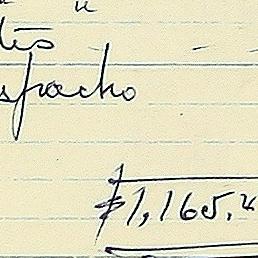 tés
spacho
$1,165.